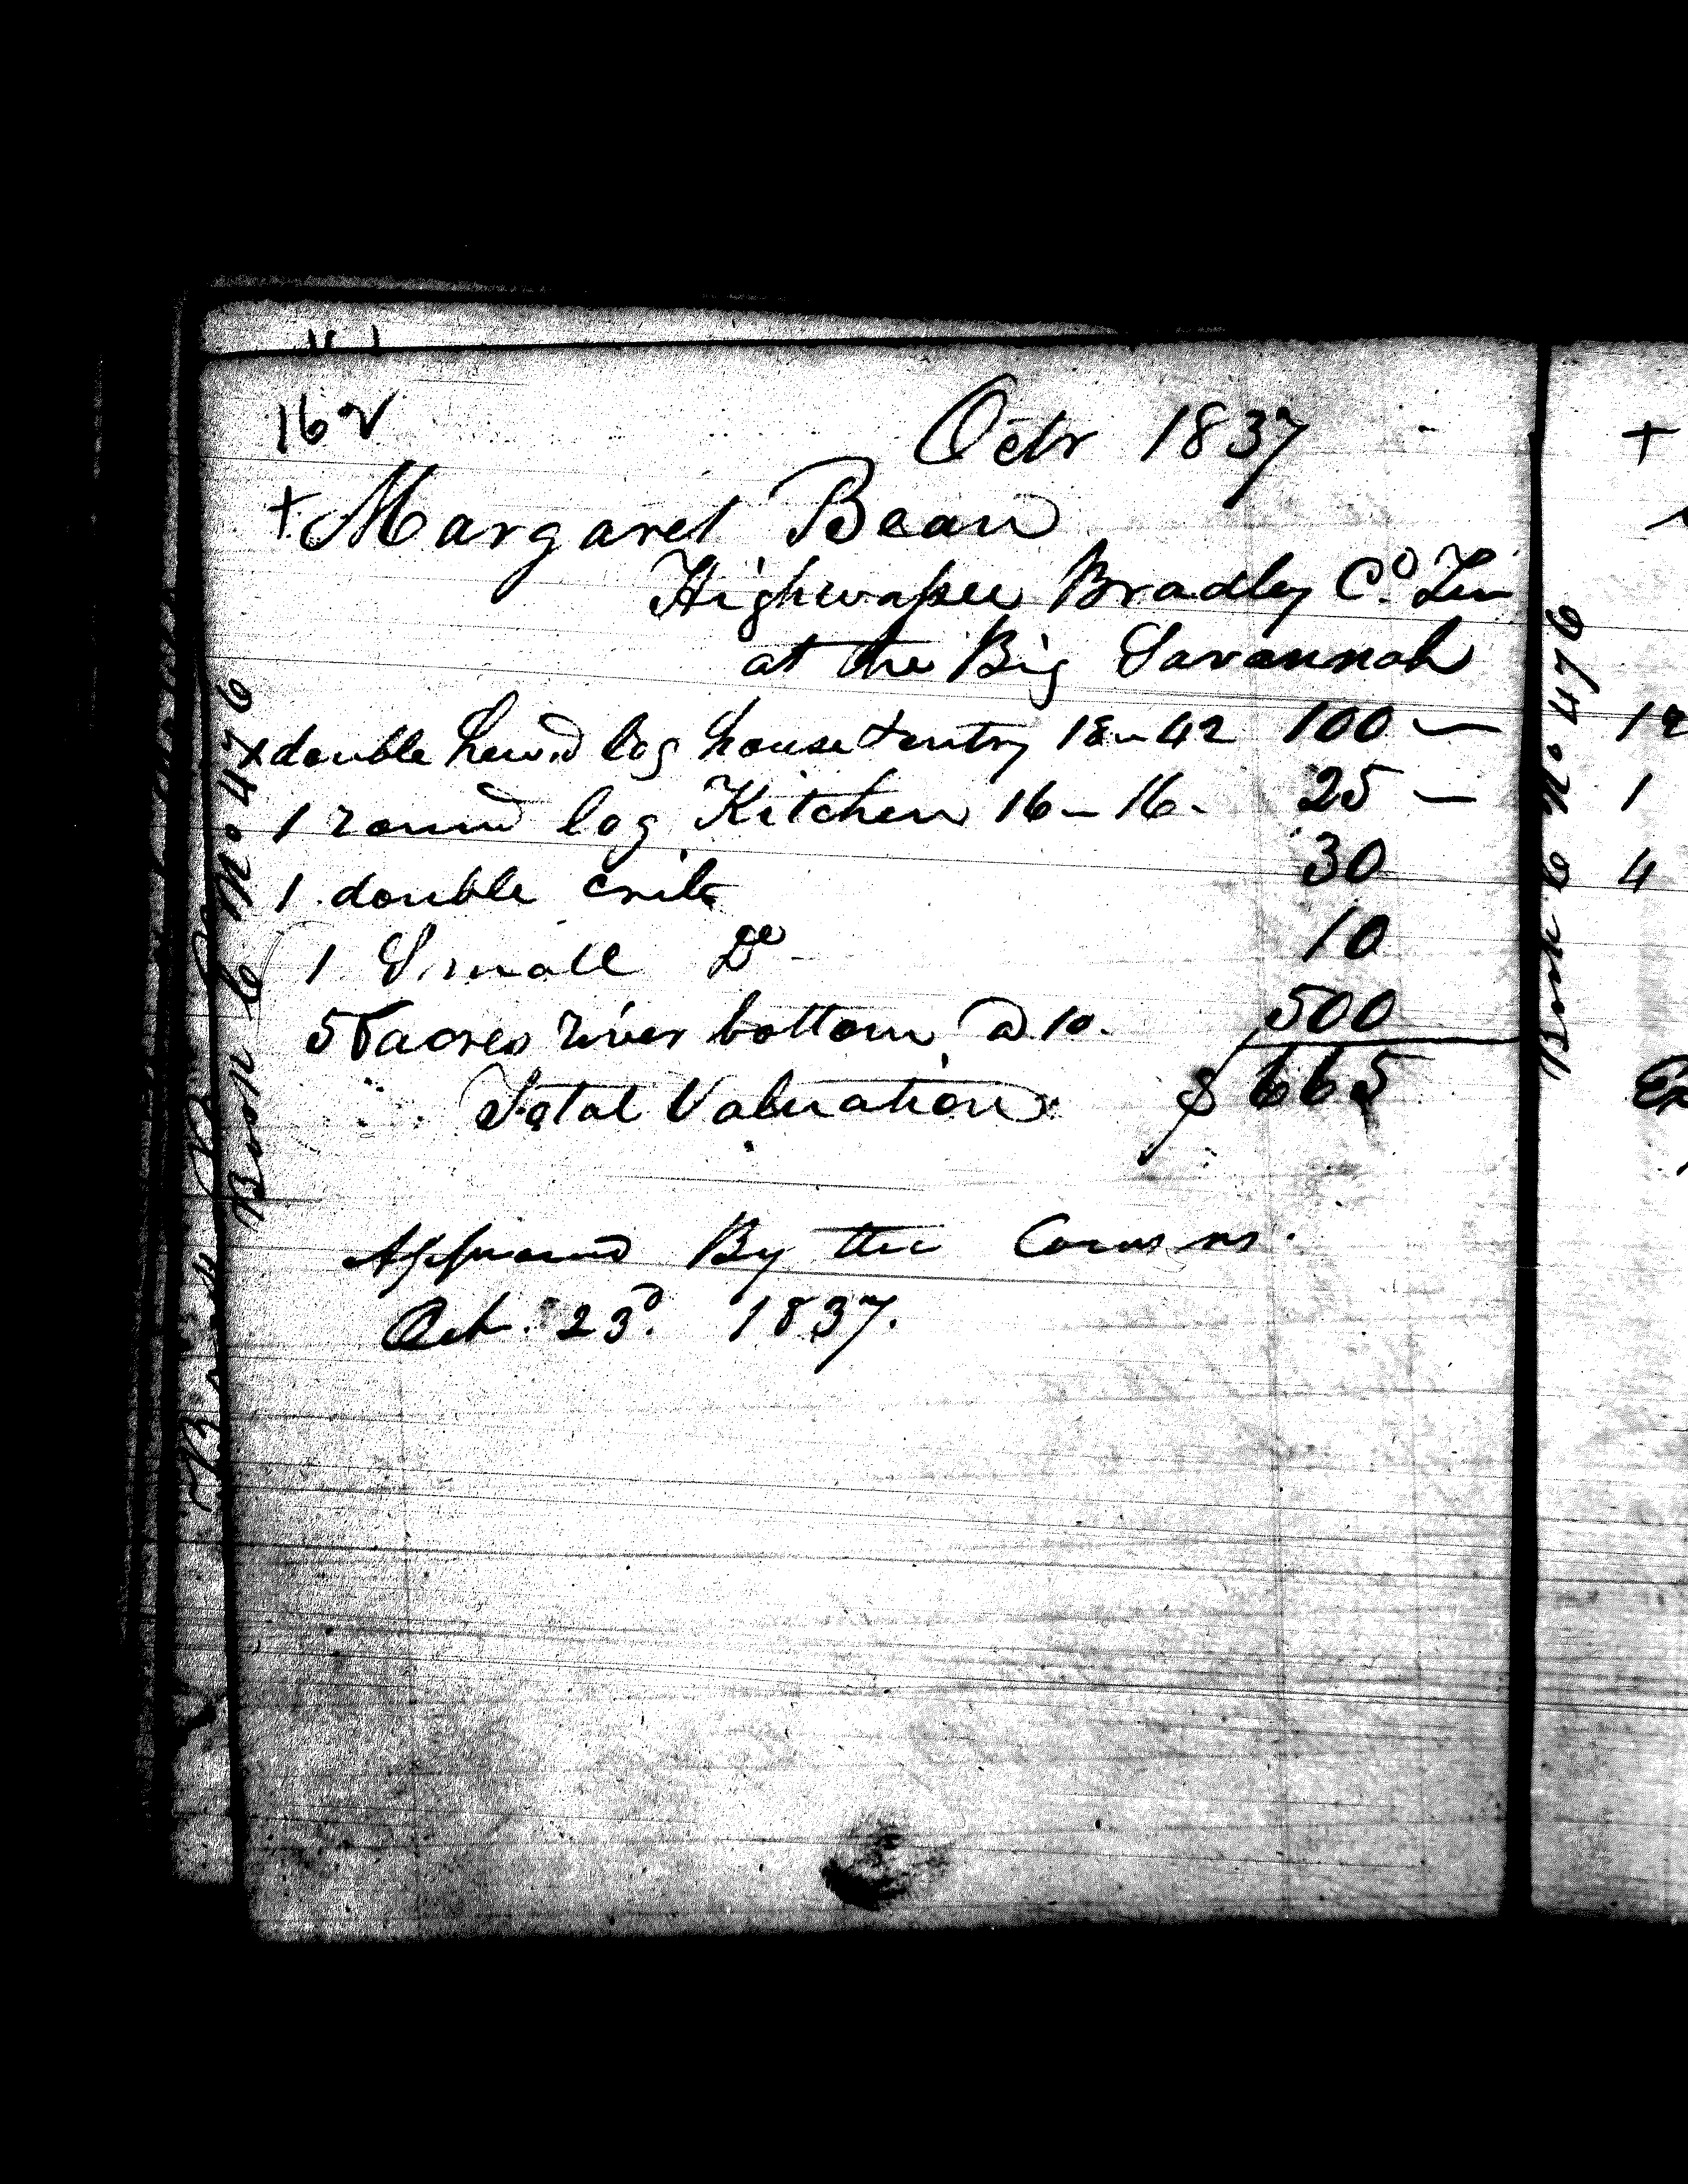 162
Octr 1837
+ Margaret Bean
Highwapee Bradley Co. Ten
at the Big Savannah
x double hewd log house & entry 18-42 100 —
1 round log Kitchen 16-16- 25 —
1 double crib 30
1 Small Do 10
50 acres river bottom @ 10. 500
Total Valuation $665
Approved By the Comsnrs.
Oct. 23d. 1837.
Book C No 476
Book C No 476
+
1
4